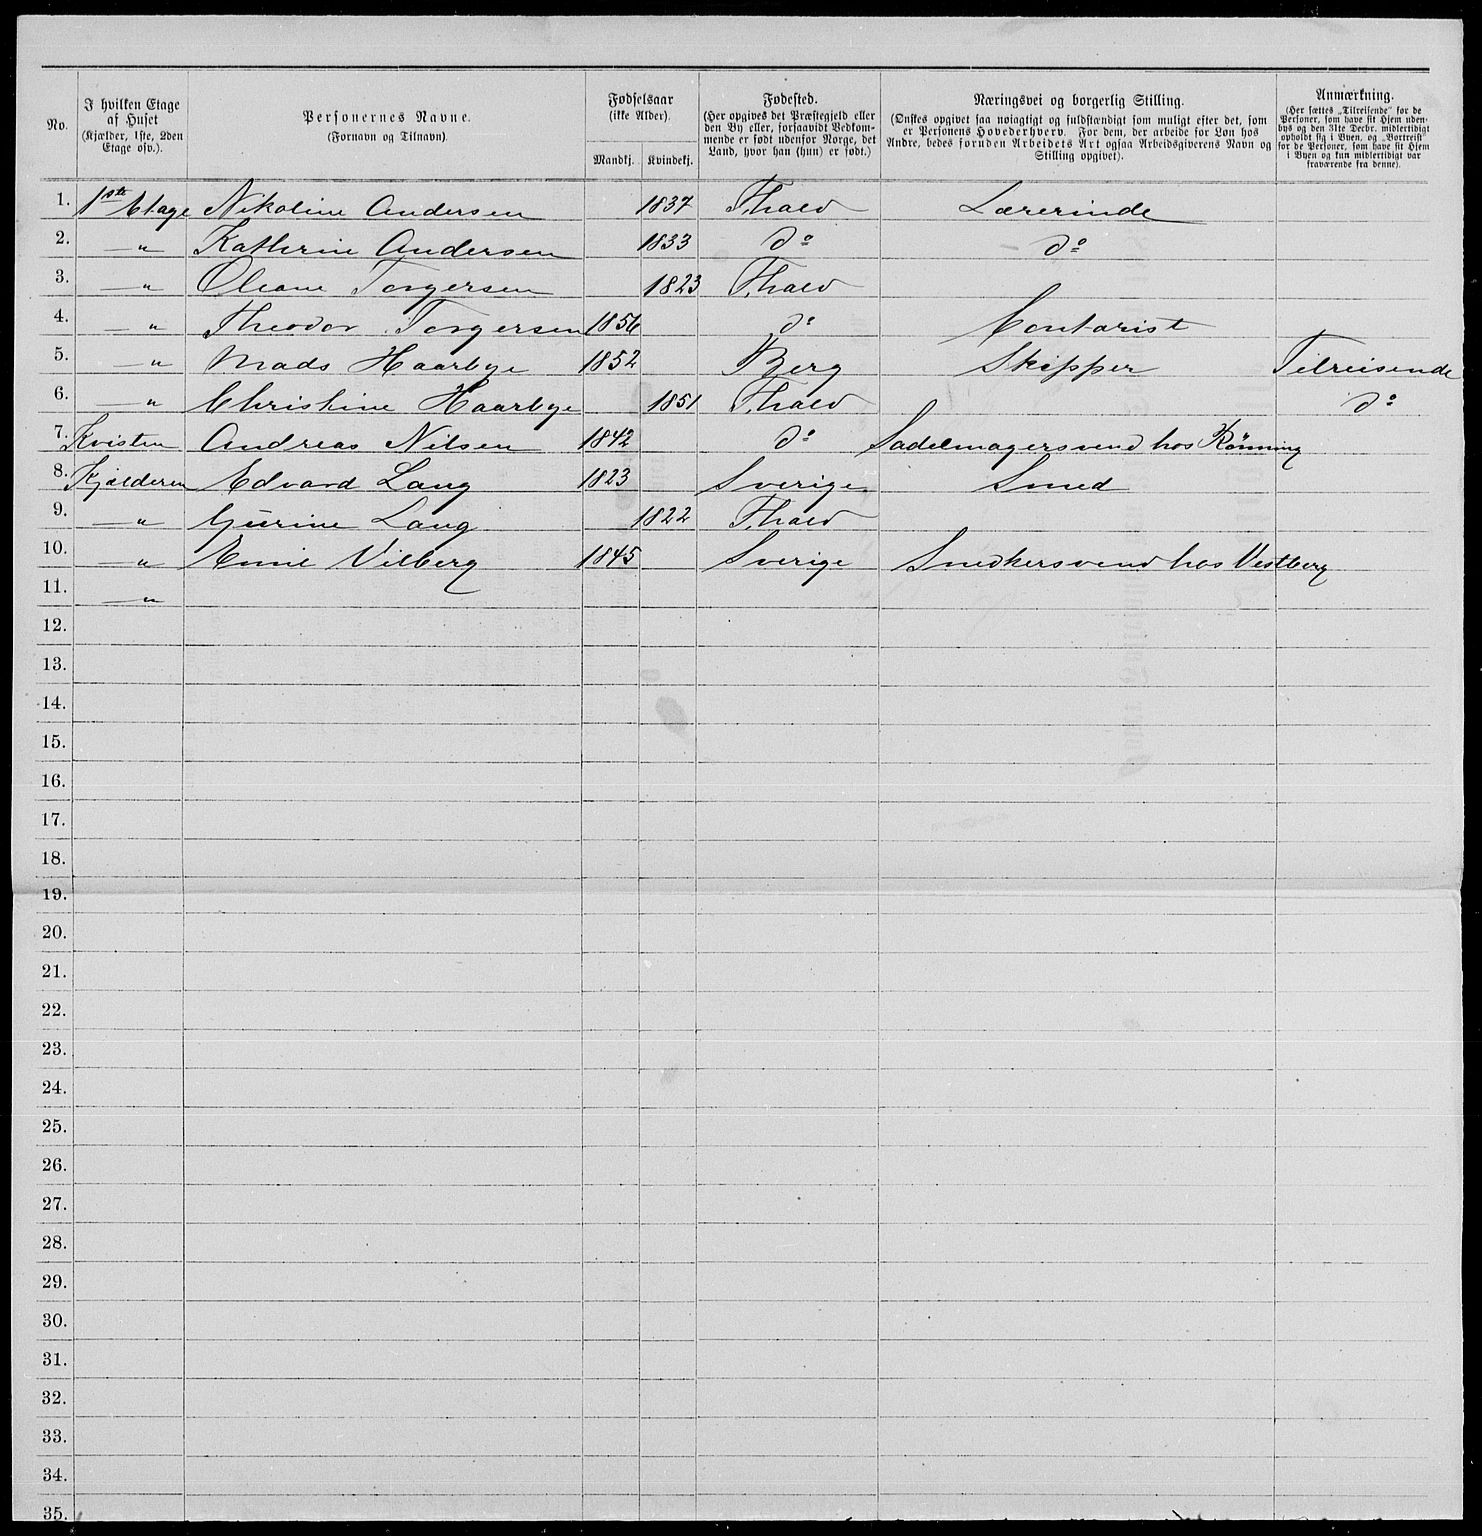 No.
I hvilken Etage
af Huset
(Kjælder, 1ste, 2den
Etage osv.).
Personernes Navne.
(Fornavn og Tilnavn).
Fødselsaar
(ikke Alder).
Mandkj. Kvindekj.
Fødested.
(Her opgives det Præstegjeld eller
den By eller, forsaavidt Vedkom-
mende er født udenfor Norge, det
Land, hvor han (hun) er født.)
Næringsvei og borgerlig Stilling.
(Ønskes opgivet saa nøiagtigt og fuldstændigt som muligt efter det, som
er Personens Hovederhverv. For dem, der arbeide for Løn hos
Andre, bedes foruden Arbeidets Art ogsaa Arbeidsgiverens Navn og
Stilling opgivet).
Anmærkning.
(Her sættes „Tilreisende“ for de
Personer, som have sit Hjem uden-
bys og den 31te Decbr. midlertidigt
opholdt sig i Byen, og „Bortreist“
for de Personer, som have sit Hjem
i Byen og kun midlertidigt var
fraværende fra denne).
1. 1ste Etage Nikoline Andersen 1837 F.hald Lærerinde
2. — „ Kathrin Andersen 1833 do do
3. — „ Oleane Torgersen 1823 F.hald
4. — „ Theodor Torgersen 1856 do Contorist
5. — „ Mads Haarbye 1852 Berg Skipper Tilreisende
6. — „ Christine Haarbye 1851 F.hald do
7. Kvisten Andreas Nilsen 1842 do Sadelmagersvend hos Rønning
8. Kjælderen Edvard Lang 1823 Sverige Smed
9. — „ Gurine Lang 1822 F.hald
10. — „ Emil Vilberg 1845 Sverige Snedkersvend hos Vestberg
11. — „
12.
13.
14.
15.
16.
17.
18.
19.
20.
21.
22.
23.
24.
25.
26.
27.
28.
29.
30.
31.
32.
33.
34.
35.